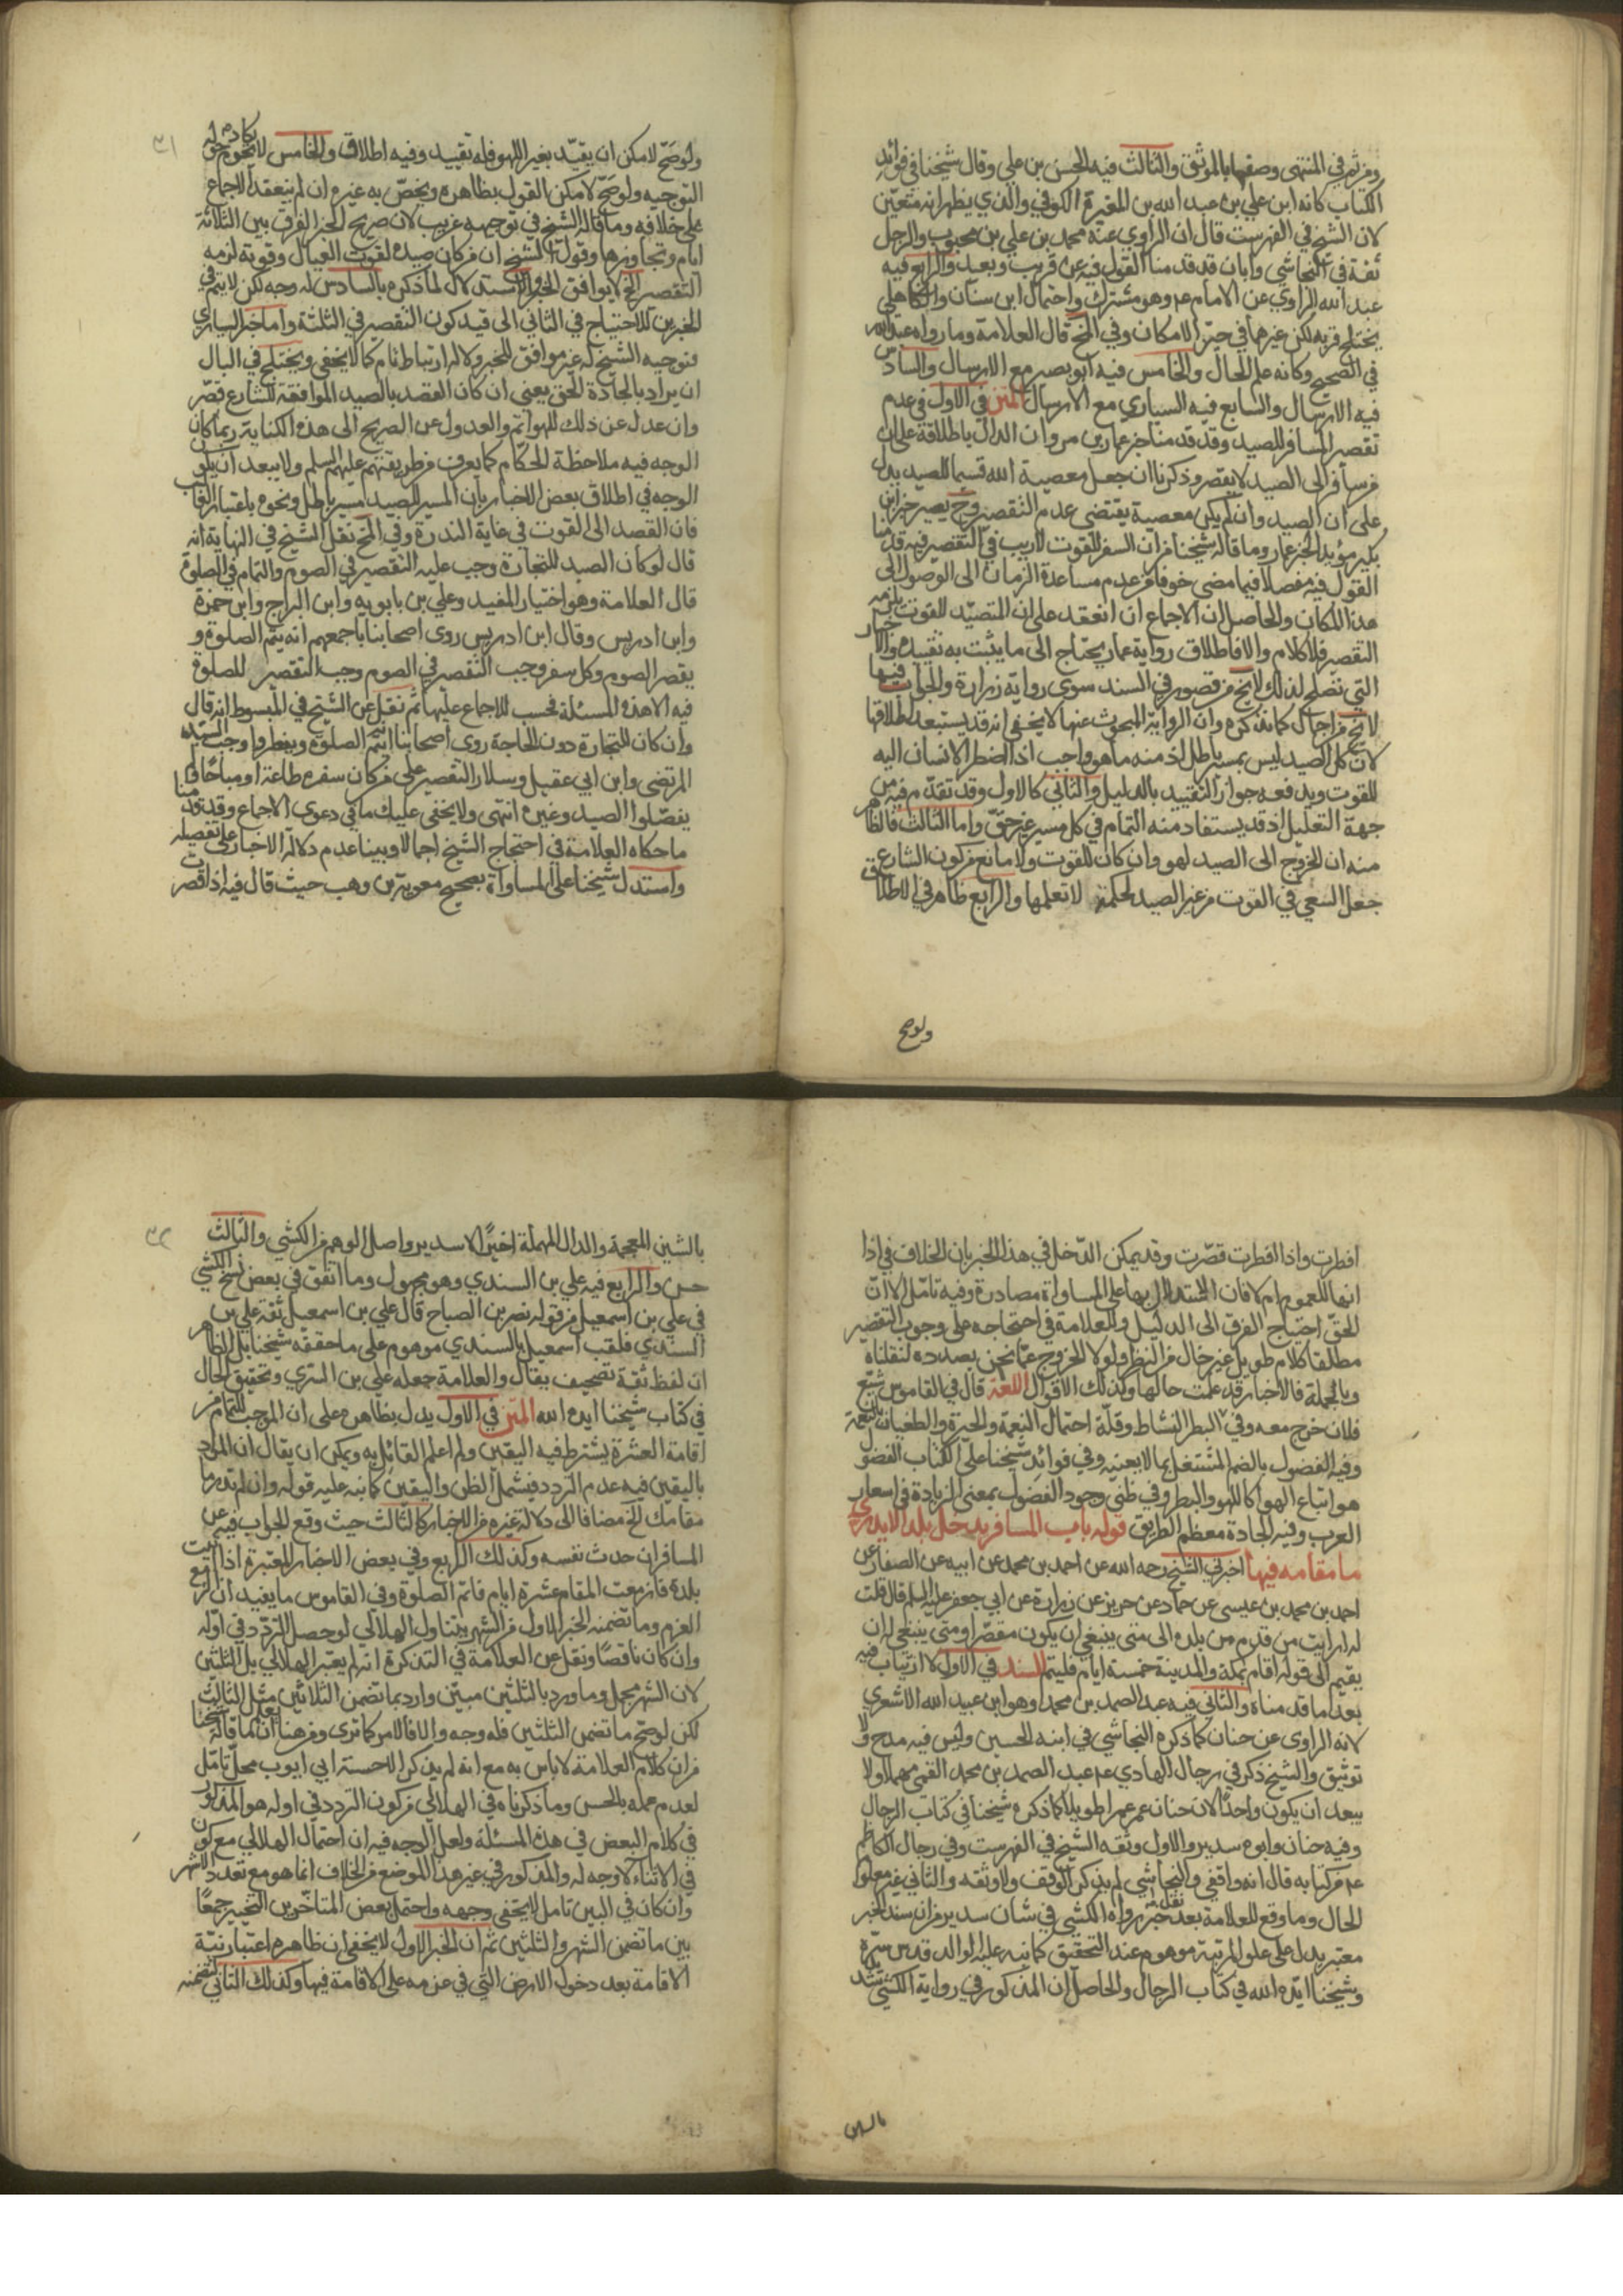 ومن ثم في المنتهى وصفها بالموثق والثالث فيه الحسن بن علي وقال شيخنا في فوائد
الكتاب كانه ابن علي بن عبد الله بن المغيرة الكوفي والذي يظهر انه متعين
لان الشيخ في الفهرست قال ان الراوي عنه محمد بن علي بن محبوب والرجل
ثقة في النجاشي وابان قد قدمنا القول فيه عن قريب وبعيد والرابع فيه
عبد الله الراوي عن الامام ع وهو مشترك واحتمال ابن سنان والكاهلي
يختلج قربه لكن غيرها في حيز الامكان وفي المخ قال العلامة وما رواه عبد الله
في الصحيح وكانه علم الحال والخامس فيه ابو بصير مع الارسال والسادس
فيه الارسال والسابع فيه السياري مع الارسال المتن في الاول في عدم
تقصير المسافر للصيد وقد قدمنا خبر عمار بن مروان الدال باطلاقه على ان
من سافر الى الصيد لا يقصر وذكرنا ان جعل معصية الله قسيما للصيد يدل
على ان الصيد وان لم يكن معصية يقتضي عدم التقصير وح يصير خبر ابن
بكير مؤيد الخبر عمار وما قاله شيخنا من ان السفر للقوت لا ريب في التقصير فيه قدمنا
القول فيه مفصلا فيما مضى خوفا من عدم مساعدة الزمان الى الوصول الى
هذا المكان والحاصل ان الاجماع ان انعقد على ان المتصيد للقوت يلزمه
التقصير فلا كلام والا فاطلاق رواية عمار يحتاج الى ما يثبت به تقييده والاخبار
التي تصلح لذلك لا يخ من قصور في السند سوى رواية زرارة والجواب فيها
لا يخ من اجمال كما نذكره وان الرواية المبحوث عنها لا يخفى انه قد يستبعد اطلاقها
لان كل الصيد ليس بمسير باطل اذ منه ما هو واجب اذا اضطر الانسان اليه
للقوت ويدفعه جواز التقييد بالدليل والثاني كالاول وقد تقدم فيه من
جهة التعليل اذ قد يستفاد منه التمام في كل مسير غير حق واما الثالث فالظاهر
منه ان الخروج الى الصيد لهو وان كان للقوت ولا مانع من كون الشارع
جعل السعي في القوت من غير الصيد لحكمة لا تعلمها والرابع ظاهر في الاطلاق
ولوصح
٣١
ولوصح لامكن ان يقيد بغير اللهو فله تقييد وفيه اطلاق والخامس لا يكاد يحوم حوله
التوجيه ولوصح لامكن القول بظاهره ويخص به غيره ان لم ينعقد الاجماع
على خلافه وما قاله الشيخ في توجيهه غريب لان صريح الخبر الفرق بين الثلاثة
ايام وتجاوزها وقول الشيخ ان من كان صيده لقوت العيال وقوته لزمه
التقصير الخ لا يوافق الخبر والاستدلال لما ذكره بالسادس له وجه لكن لا يتم في
الخبرين للاحتياج في الثاني الى قيد كون التقصير في الثلثة واما خبر السياري
فتوجيه الشيخ له غير موافق للخبر ولا له ارتباط تام كما لا يخفى ويختلج في البال
ان يراد بالجادة الحق يعني ان كان القصد بالصيد الموافقة للشارع قصر
وان عدل عن ذلك للهو اتم والعدول عن الصريح الى هذه الكناية ربما كان
الوجه فيه ملاحظة الحكام كما يعرف من طريقتهم عليهم السلم ولا يبعد ان يكون
الوجه في اطلاق بعض الاخبار بان المسير للصيد مسير باطل ونحوه باعتبار الغالب
فان القصد الى القوت في غاية الندرة وفي المخ نقل الشيخ في النهاية انه
قال لو كان الصيد للتجارة وجب عليه التقصير في الصوم والتمام في الصلوة
قال العلامة وهو اختيار المفيد وعلي بن بابويه وابن البراج وابن حمزة
وابن ادريس وقال ابن ادريس روى اصحابنا باجمعهم انه يتم الصلوة و
يقصر الصوم وكل سفر وجب التقصير في الصوم وجب التقصير للصلوة
فيه الا هذه المسئلة فحسب للاجماع عليها ثم نقل عن الشيخ في المبسوط انه قال
وان كان للتجارة دون للحاجة روى اصحابنا انه يتم الصلوة ويفطر واوجب السيد
المرتضى وابن ابي عقيل وسلار التقصير على من كان سفره طاعة او مباحا ولم
يفصلوا الصيد وغيره انتهى ولا يخفى عليك ما في دعوى الاجماع وقد قدمنا
ما حكاه العلامة في احتجاج الشيخ اجمالا وبينا عدم دلالة الاخبار على تفصيله
واستدل شيخنا على المساواة بصحيح معوية بن وهب حيث قال فيه اذا قصرت
افطرت واذا افطرت قصرت وقد يمكن الدخل في هذا الخبر بان الخلاف في اذا
انها للعموم ام لا فان الاستدلال بها على المساواة مصادرة وفيه تامل الا ان
الحق احتياج الفرق الى الدليل وللعلامة في احتجاجه على وجوب التقصير
مطلقا كلام طويل غير خال من النظر ولولا الخروج عما نحن بصدده لنقلناه
وبالجملة فالاخبار قد علمت حالها وكذلك الاقوال اللغة قال في القاموس شيع
فلان خرج معه وفي البطر النشاط وقلة احتمال النعمة والحيرة والطغيان بالنعمة
وفيه الفضول بالضم المشتغل بما لا يعنيه وفي فوائد شيخنا على الكتاب الفضول
هو اتباع الهوا كاللهو والبطر وفي ظني وجود الفضول بمعنى الزيادة في اسعار
العرب وفيه الجادة معظم الطريق قوله باب المسافر يدخل بلدا لا يدري
ما مقامه فيها اخبرني الشيخ رحمه الله عن احمد بن محمد عن ابيه عن الصفار عن
احمد بن محمد بن عيسى عن حماد عن حريز عن زرارة عن ابي جعفر عليه السلم قال قلت
له ارايت من قدم من بلده الى متى ينبغي ان يكون مقصرا ومتى ينبغي له ان
يقيم الى قوله اقام بمكة والمدينة خمسة ايام فليتم السند في الاول لا ارتياب فيه
بعد ما قدمناه والثاني فيه عبد الصمد بن محمد وهو ابن عبيد الله الاشعري
لانه الراوي عن حنان كما ذكره النجاشي في ابنه الحسين وليس فيه مدح ولا
توثيق والشيخ ذكر في رجال الهادي ع عبد الصمد بن محمد القمي مهملا ولا
يبعد ان يكون واحدا لان حنان عمر عمرا طويلا كما ذكره شيخنا في كتاب الرجال
وفيه حنان وابوه سدير والاول وثقه الشيخ في الفهرست وفي رجال الكاظم
ع من كتابه قال انه واقفي والنجاشي لم يذكر الوقف ولا وثقه والثاني غير معلوم
الحال وما وقع للعلامة بعد نقل خبر رواه الكشي في شان سدير من ان سند الخبر
معتبر يدل على علو المرتبة موهوم عند التحقيق كما نبه عليه الوالد قدس سره
وشيخنا ايده الله في كتاب الرجال والحاصل ان المذكور في رواية الكشي شديد
بالشين
٣٢
بالشين المعجمة والدال المهملة اخيرا لا سدير واصل الوهم من الكشي والثالث
حسن والرابع فيه علي بن السندي وهو مجهول وما اتفق في بعض نسخ الكشي
في علي بن اسمعيل من قوله نصر بن الصباح قال علي بن اسمعيل ثقة علي بن
السندي فلقب اسمعيل بالسندي موهوم على ما حققه شيخنا بل الظاهر
ان لفظ ثقة تصحيف يقال والعلامة جعله علي بن السري وتحقيق الحال
في كتاب شيخنا ايده الله المتن في الاول يدل بظاهره على ان الموجب للتمام من
اقامة العشرة يشترط فيه اليقين ولم اعلم القائل به ويمكن ان يقال ان المراد
باليقين فيه عدم التردد فيشمل الظن واليقين كما نبه عليه قوله وان لم تدر ما
مقامك الخ مضافا الى دلالة غيره من الاخبار كالثالث حيث وقع الجواب فيه عن
المسافر ان حدث نفسه وكذلك الرابع وفي بعض الاخبار المعتبرة اذا اتيت
بلدة فازمعت المقام عشرة ايام فاتم الصلوة وفي القاموس ما يفيد ان ازمع
العزم وما تضمنه الخبر الاول من الشهر يتناول الهلالي لو حصل التردد في اوله
وان كان ناقصا ونقل عن العلامة في التذكرة انه لم يعتبر الهلالي بل الثلثين
لان الشهر مجمل وما ورد بالثلثين مبين وارد بما تضمن الثلاثين مثل الثالث
لكن لو صح ما تضمن الثلثين فله وجه والا فالامر كما ترى ومن هنا يعلم ان ما قاله شيخنا
من ان كلام العلامة لا باس به مع انه لم يذكر الا حسنة ابي ايوب محل تامل
لعدم عمله بالحسن وما ذكرناه في الهلالي من كون التردد في اوله هو المذكور
في كلام البعض في هذه المسئلة ولعل الوجه فيه ان احتمال الهلالي مع كون
في الاثناء لا وجه له والمذكور في غير هذا الموضع من الخلاف انما هو مع تعدد الاشهر
وان كان في البين تامل لا يخفى وجهه واحتمل بعض المتاخرين التخيير جمعا
بين ما تضمن الشهر والثلثين ثم ان الخبر الاول لا يخفى ان ظاهره اعتبار نية
الاقامة بعد دخول الارض التي في عزمه على الاقامة فيها وكذلك الثاني لتضمنه